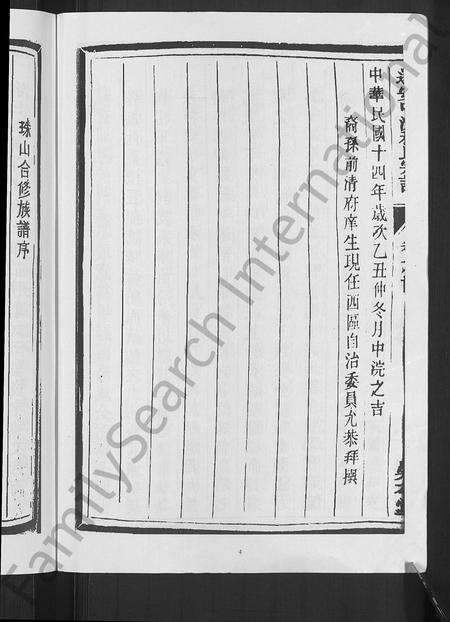 中華民國十四年歲次乙丑仲冬月中浣之吉
裔孫前清府庠生現任西區自治委員允恭拜撰
珠山合修族譜序
FamilySearch International